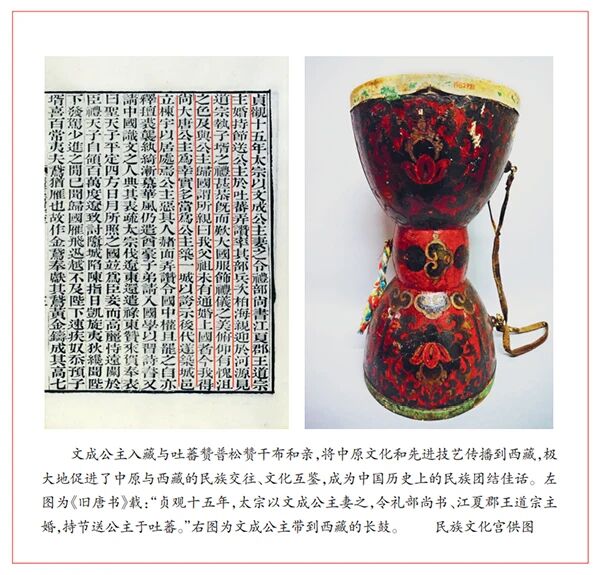 貞觀十五年太宗以文成公主妻之令禮部尚書江夏郡王道宗
主婚持節送公主於吐蕃弄讚率其部兵次柏海親迎於河源見
道宗執子壻之禮甚恭既而歎大國服飾禮儀之美俯仰有愧沮
之色及與公主歸國謂所親曰我父祖未有通婚上國者今我得
尚大唐公主爲幸實多當爲公主築一城以誇示後代遂築城邑
立棟宇以居處焉公主惡其人赭面弄讚令國中權且罷之自亦
釋氊裘襲紈綺漸慕華風仍遣酋豪子弟請入國學以習詩書又
請中國識文之人典其表疏太宗伐遼東還遣祿東贊來賀奉表
曰聖天子平定四方日月所照之國並爲臣妾而高麗恃遠闕於
臣禮天子自領百萬度遼致討隳城陷陣指日凱旋夷狄纔聞陛
下發駕少進之間已聞歸國雁飛迅越不及陛下速疾奴忝預子
壻喜百常夷夫鵞猶雁也故作金鵞奉獻其鵞黃金鑄成其高七
文成公主入藏与吐蕃赞普松赞干布和亲，将中原文化和先进技艺传播到西藏，极
大地促进了中原与西藏的民族交往、文化互鉴，成为中国历史上的民族团结佳话。左
图为《旧唐书》载：“贞观十五年，太宗以文成公主妻之，令礼部尚书、江夏郡王道宗主
婚，持节送公主于吐蕃。”右图为文成公主带到西藏的长鼓。 民族文化宫供图